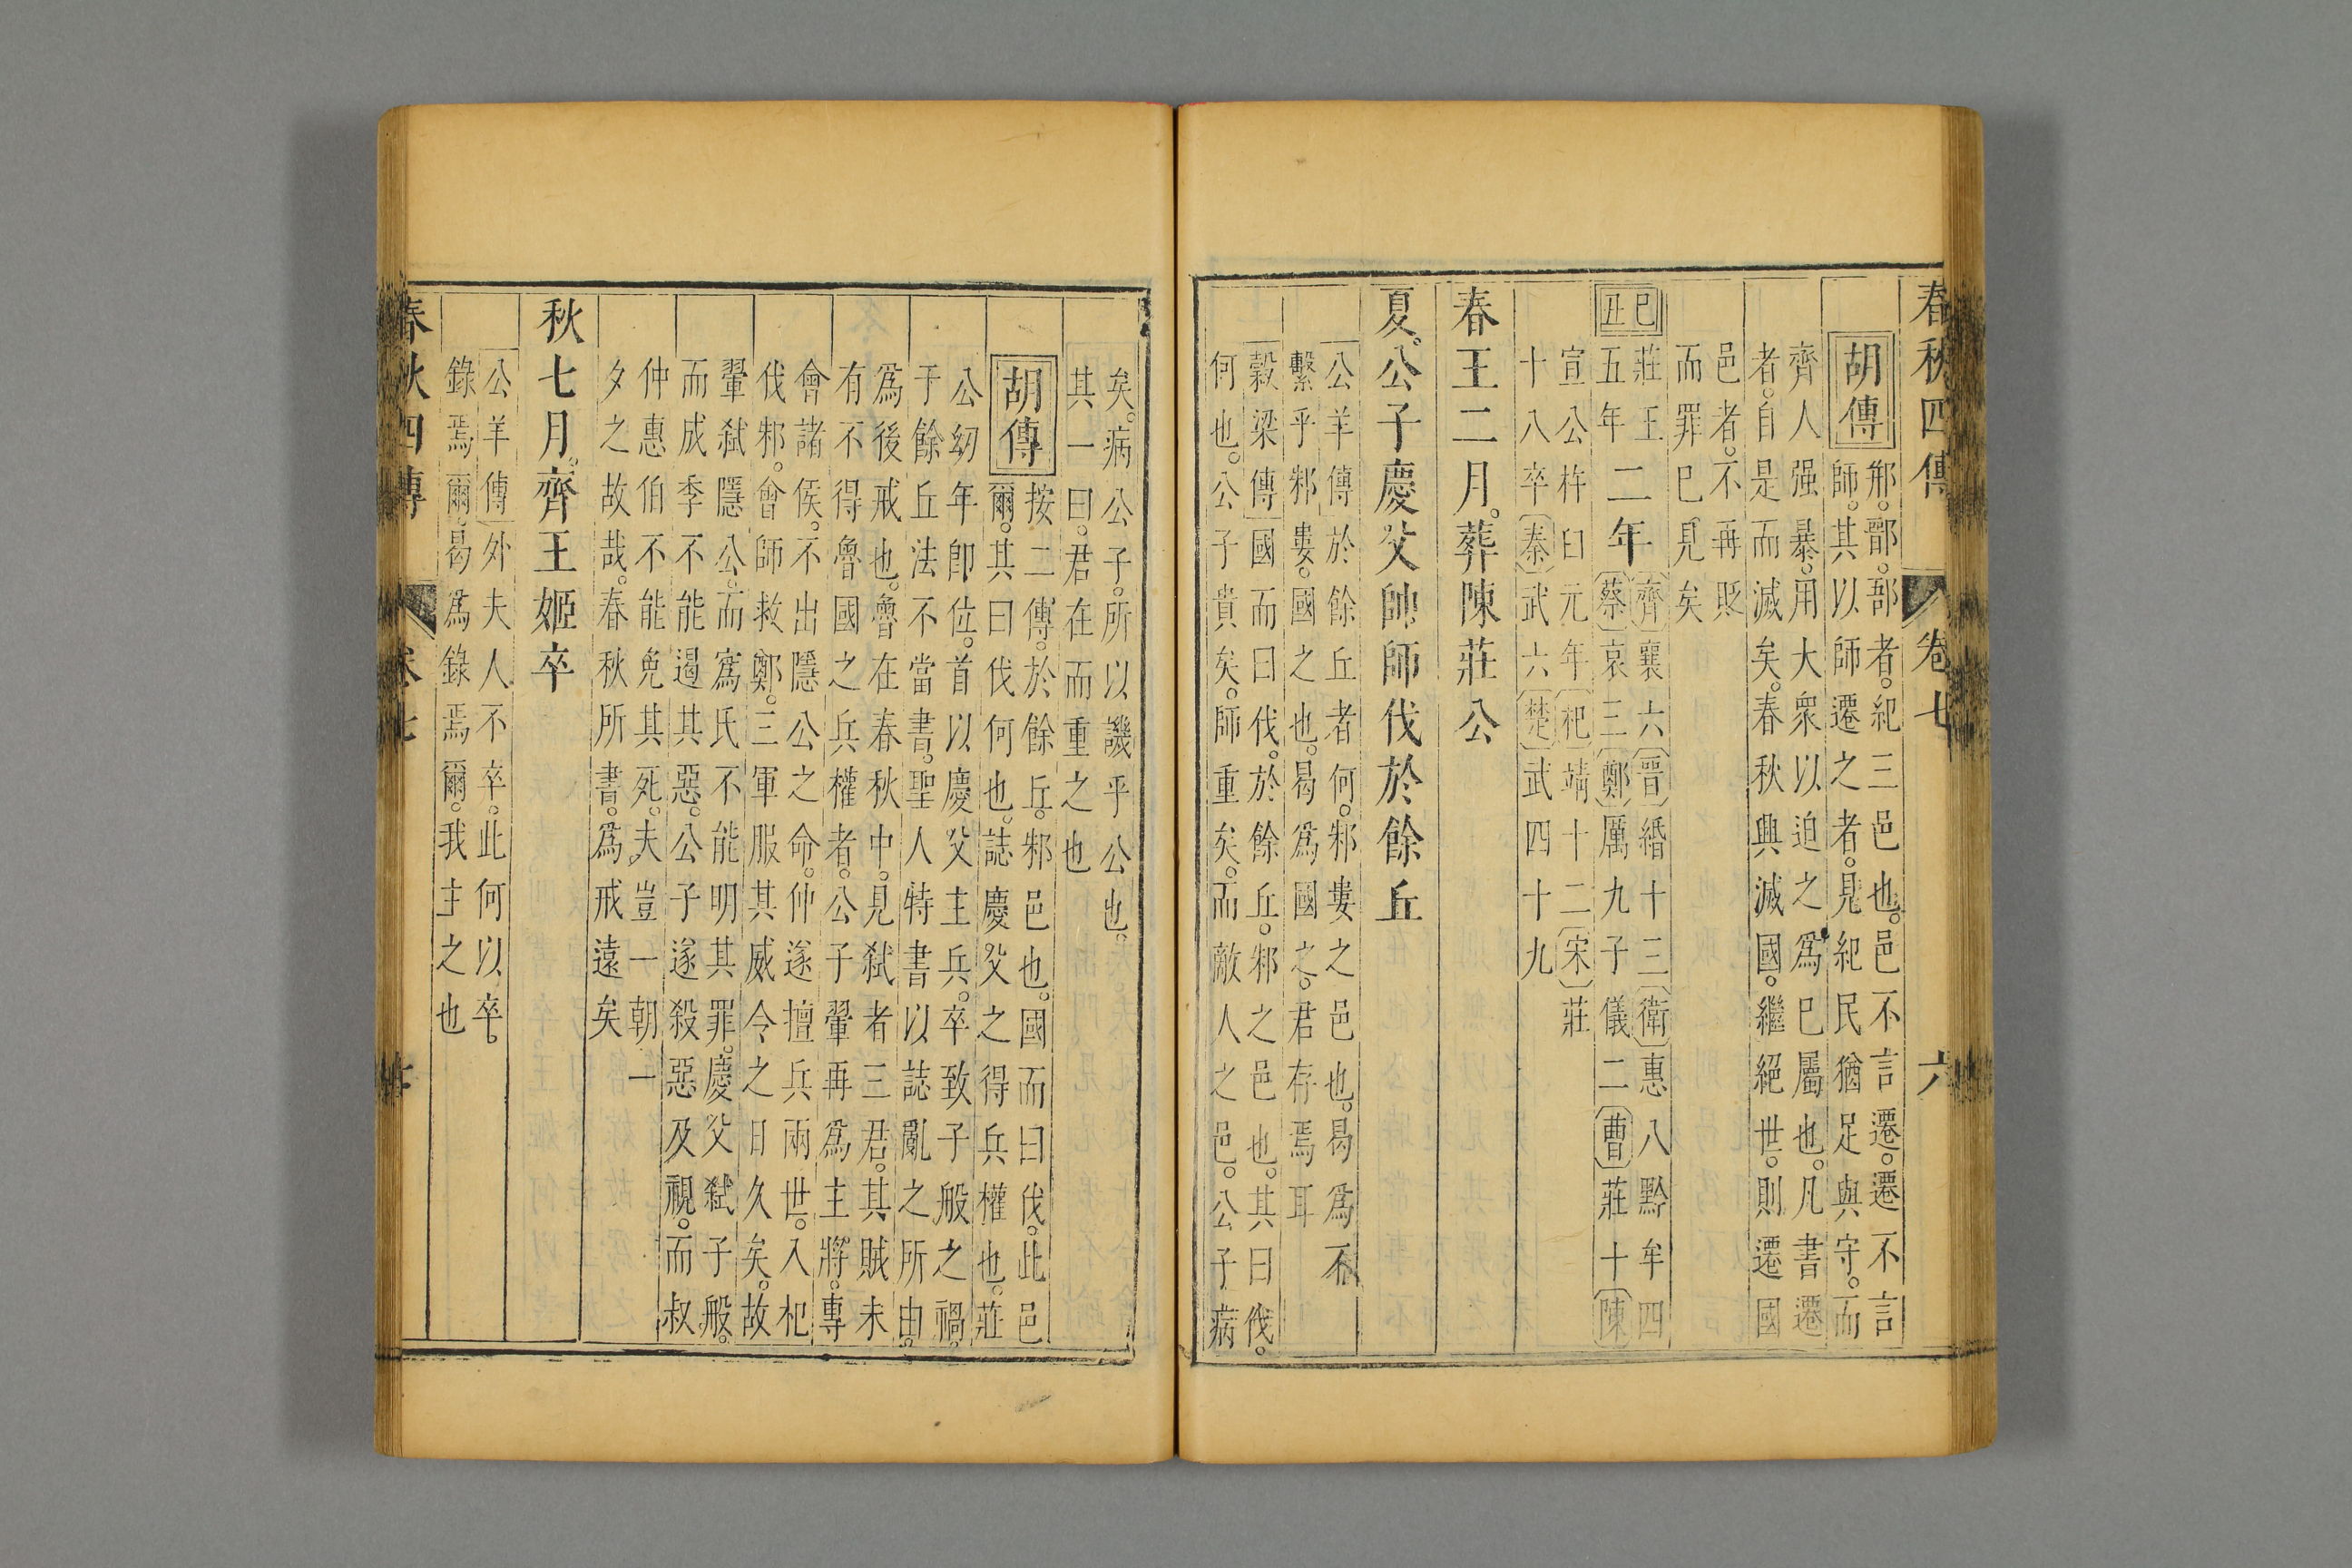 春秋四傳 卷七 六
胡傳 郱。鄑。郚者。紀三邑也。邑不言遷。遷不言
師。其以師遷之者。見紀民猶足與守。而
齊人强暴。用大衆以迫之爲巳屬也。凡書遷
者。自是而滅矣。春秋興滅國。繼絕世。則遷國
邑者。不再貶
而罪巳見矣
己丑
莊王
五年
二年
齊襄六晉緡十三衛惠八黔牟四
蔡哀三鄭厲九子儀二曹莊十陳
宣公杵臼元年杞靖十二宋莊
十八卒秦武六楚武四十九
春王二月。葬陳莊公
夏。公子慶父帥師伐於餘丘
公羊傳於餘丘者何。邾婁之邑也。曷爲不
繫乎邾婁。國之也。曷爲國之。君存焉耳
穀梁傳國而曰伐。於餘丘。邾之邑也。其曰伐。
何也。公子貴矣。師重矣。而敵人之邑。公子病
矣。病公子。所以譏乎公也。
其一曰。君在而重之也
胡傳 按二傳。於餘丘。邾邑也。國而曰伐。此邑
爾。其曰伐何也。誌慶父之得兵權也。莊
公幼年卽位。首以慶父主兵。卒致子般之禍。
于餘丘法不當書。聖人特書以誌亂之所由。
爲後戒也。魯在春秋中。見弑者三君。其賊未
有不得魯國之兵權者。公子翬再爲主將。專
會諸侯。不出隱公之命。仲遂擅兵兩世。入杞
伐邾。會師救鄭。三軍服其威令之日久矣。故
翬弑隱公。而寪氏不能明其罪。慶父弑子般。
而成季不能遏其惡。公子遂殺惡及視。而叔
仲惠伯不能免其死。夫豈一朝一
夕之故哉。春秋所書。爲戒遠矣
秋七月。齊王姬卒
公羊傳外夫人不卒。此何以卒。
錄焉爾。曷爲錄焉爾。我主之也
春秋四傳 卷七 七